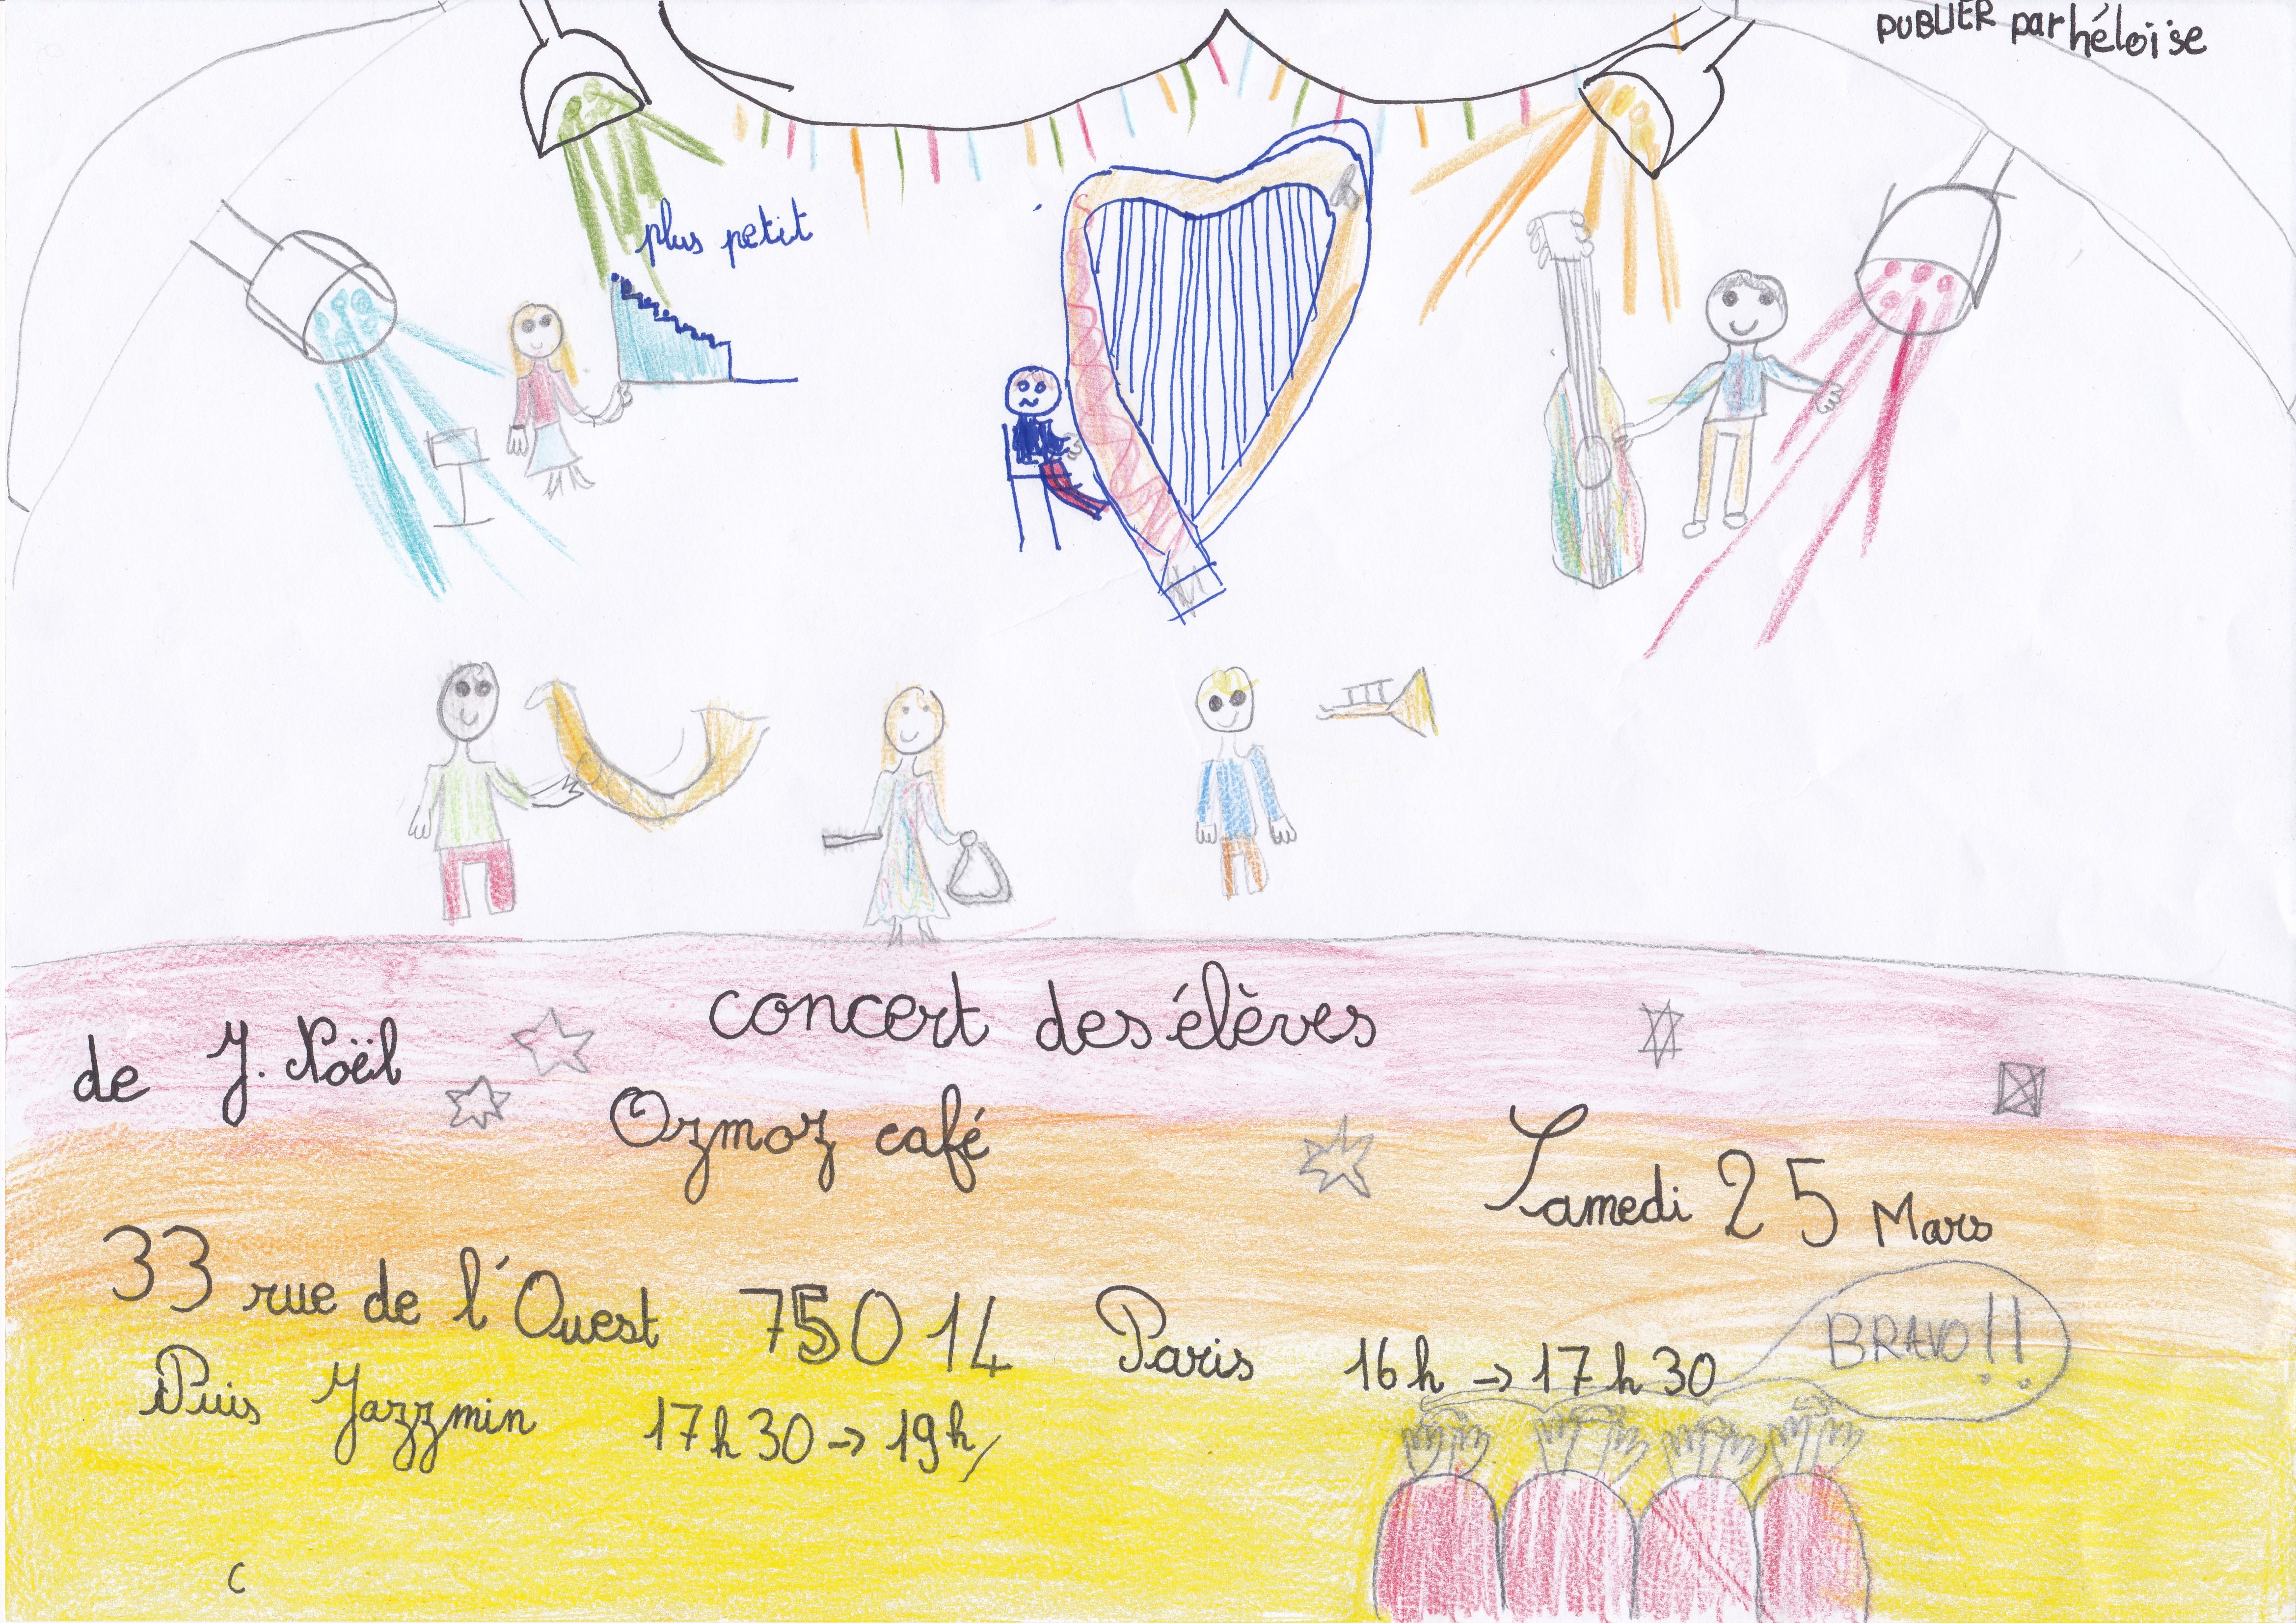 PUBLIER par héloïse
plus petit
concert des élèves
de J. Noël
Ozmoz café
Samedi 25 Mars
33 rue de l'Ouest 75014 Paris 16h → 17h30
BRAVO!!
Puis Jazzmin 17h30 → 19h
c